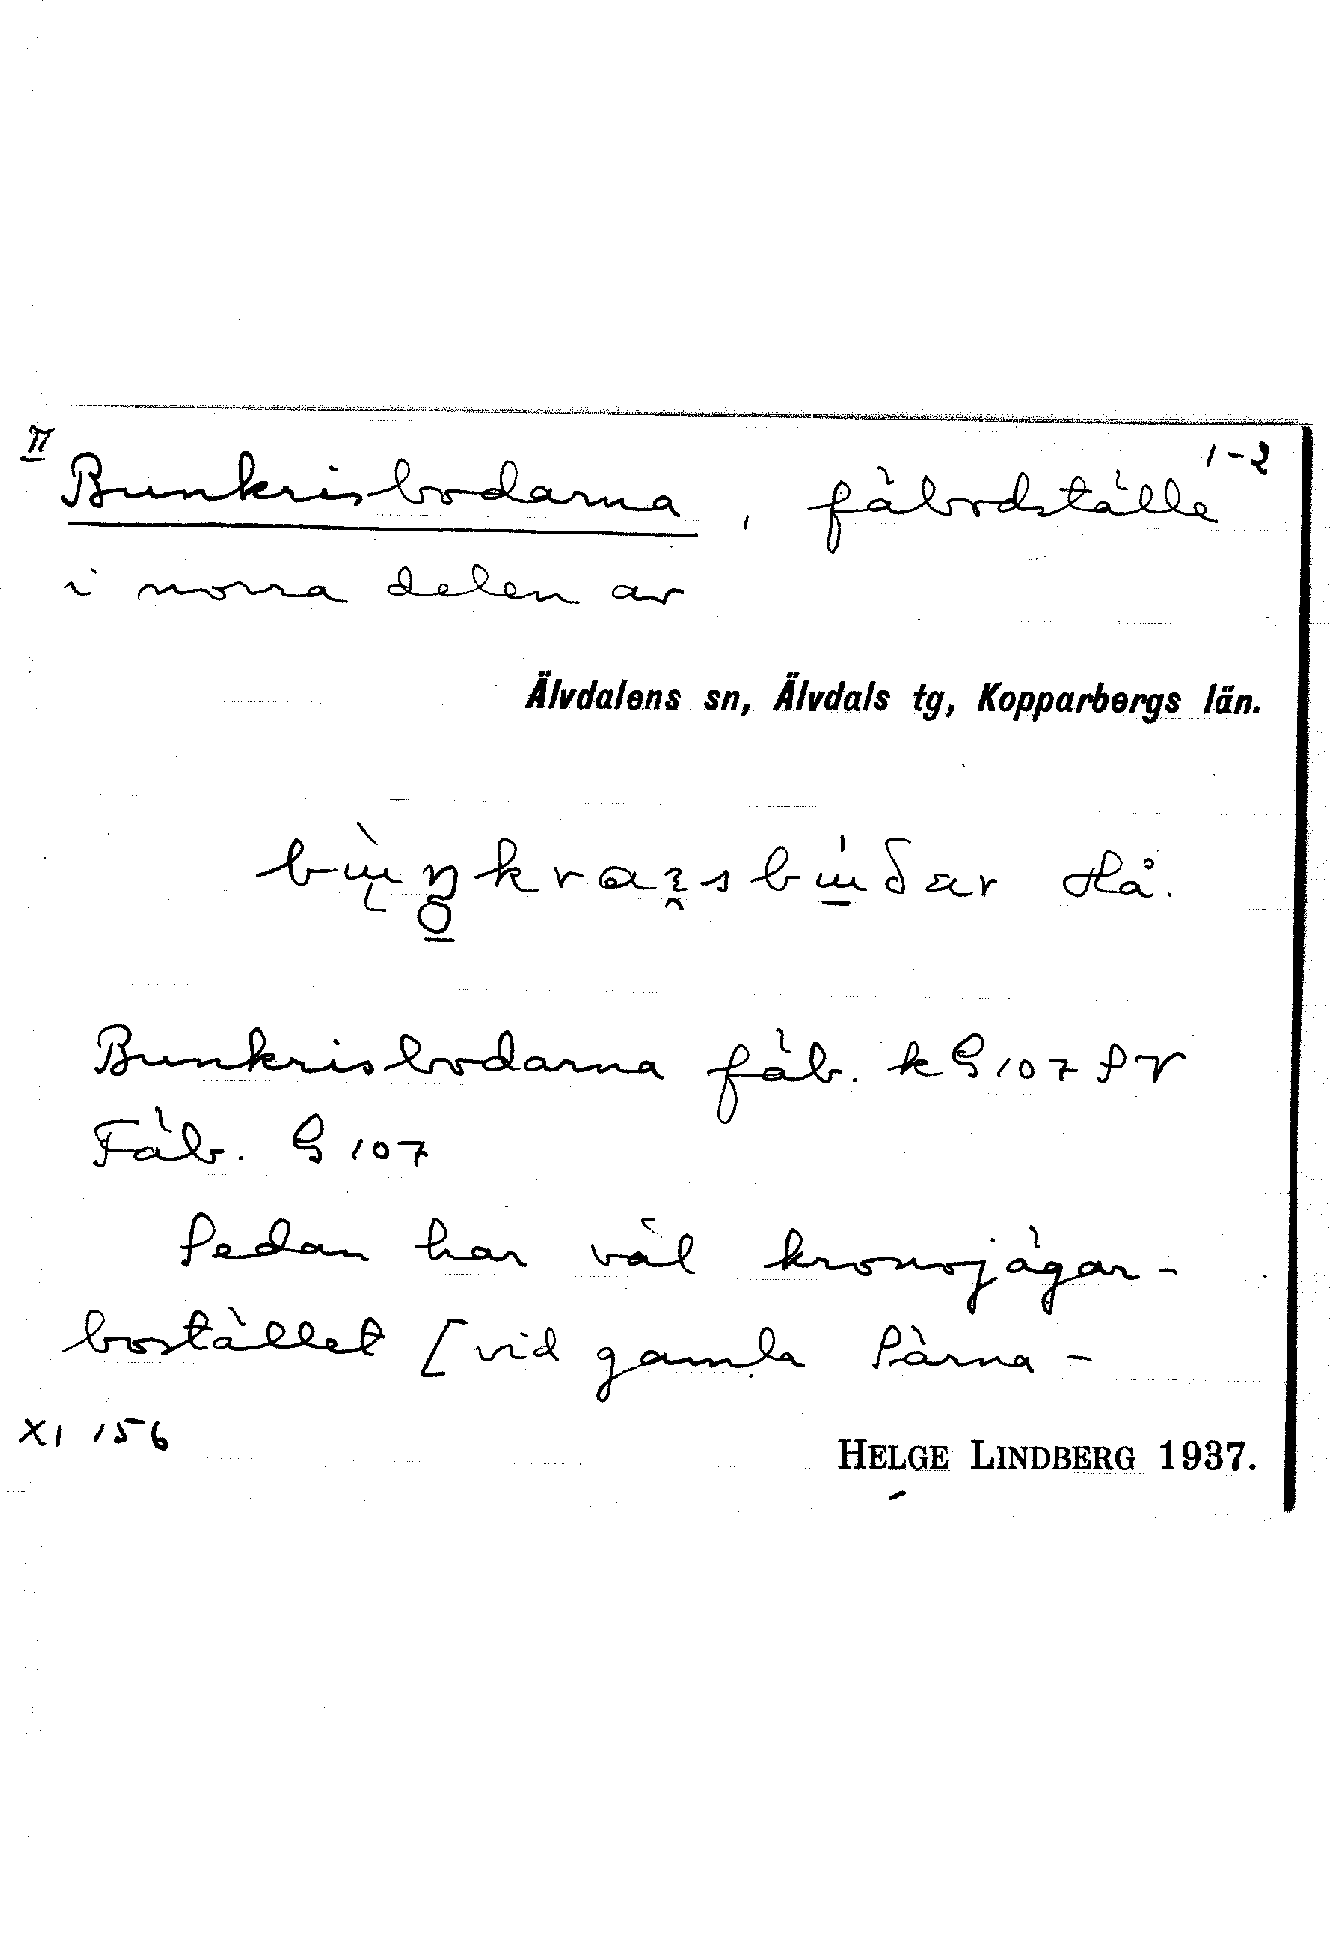 II 1-2
Bunkrisbodarna, fäbodställe
i norra delen av
Älvdalens sn, Älvdals tg, Kopparbergs län.
Hå.
Bunkrisbodarna fäb. k G 107 SV
Fäb. G 107
Sedan har väl kronojägar-
bostället [vid gamla Särna-
XI 156
HELGE LINDBERG 1937.